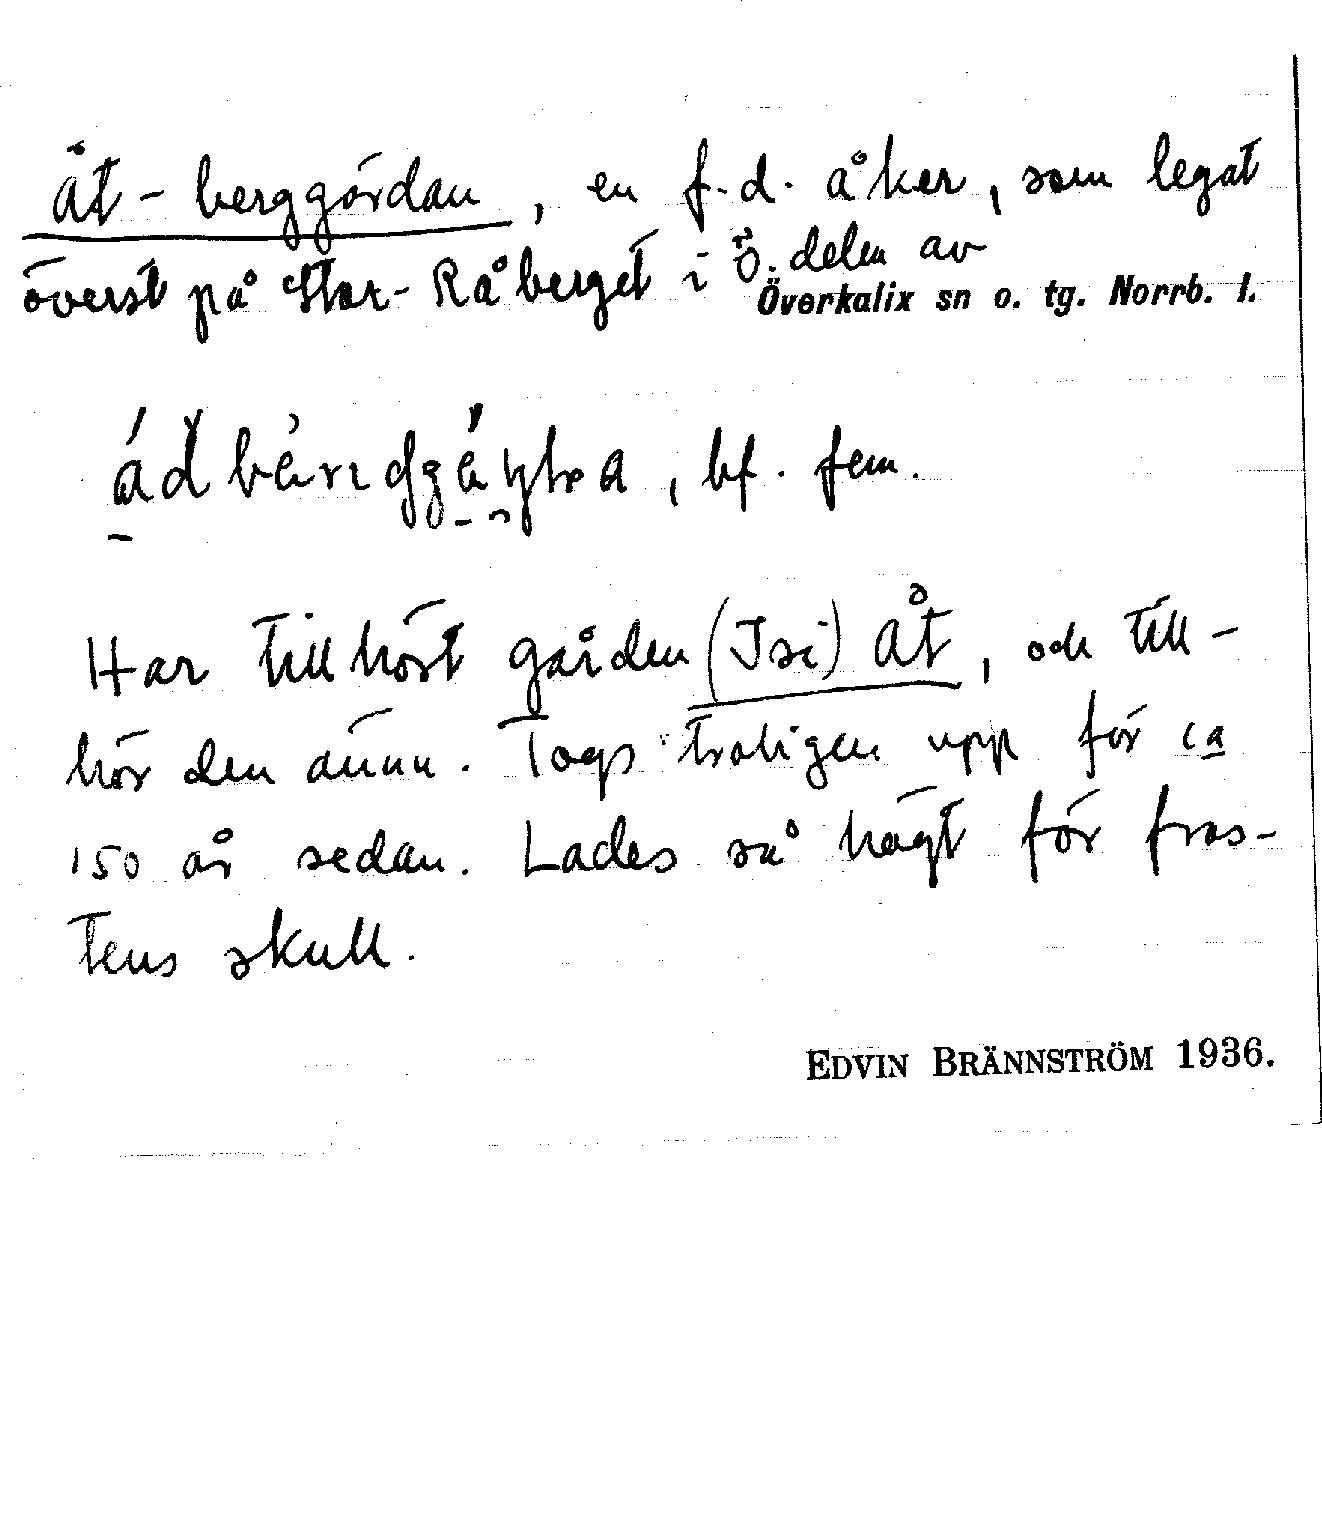 Åt-berggördan, en f.d. åker, som legat
överst på Stor-Råberget i ö. delen av
Överkalix sn o. tg. Norrb. l.
bf. fem.
Har tillhört gården (Isi) Åt, och till-
hör den ännu. Togs troligen upp för ca
150 år sedan. Lades så högt för fros-
tens skull.
EDVIN BRÄNNSTRÖM 1936.